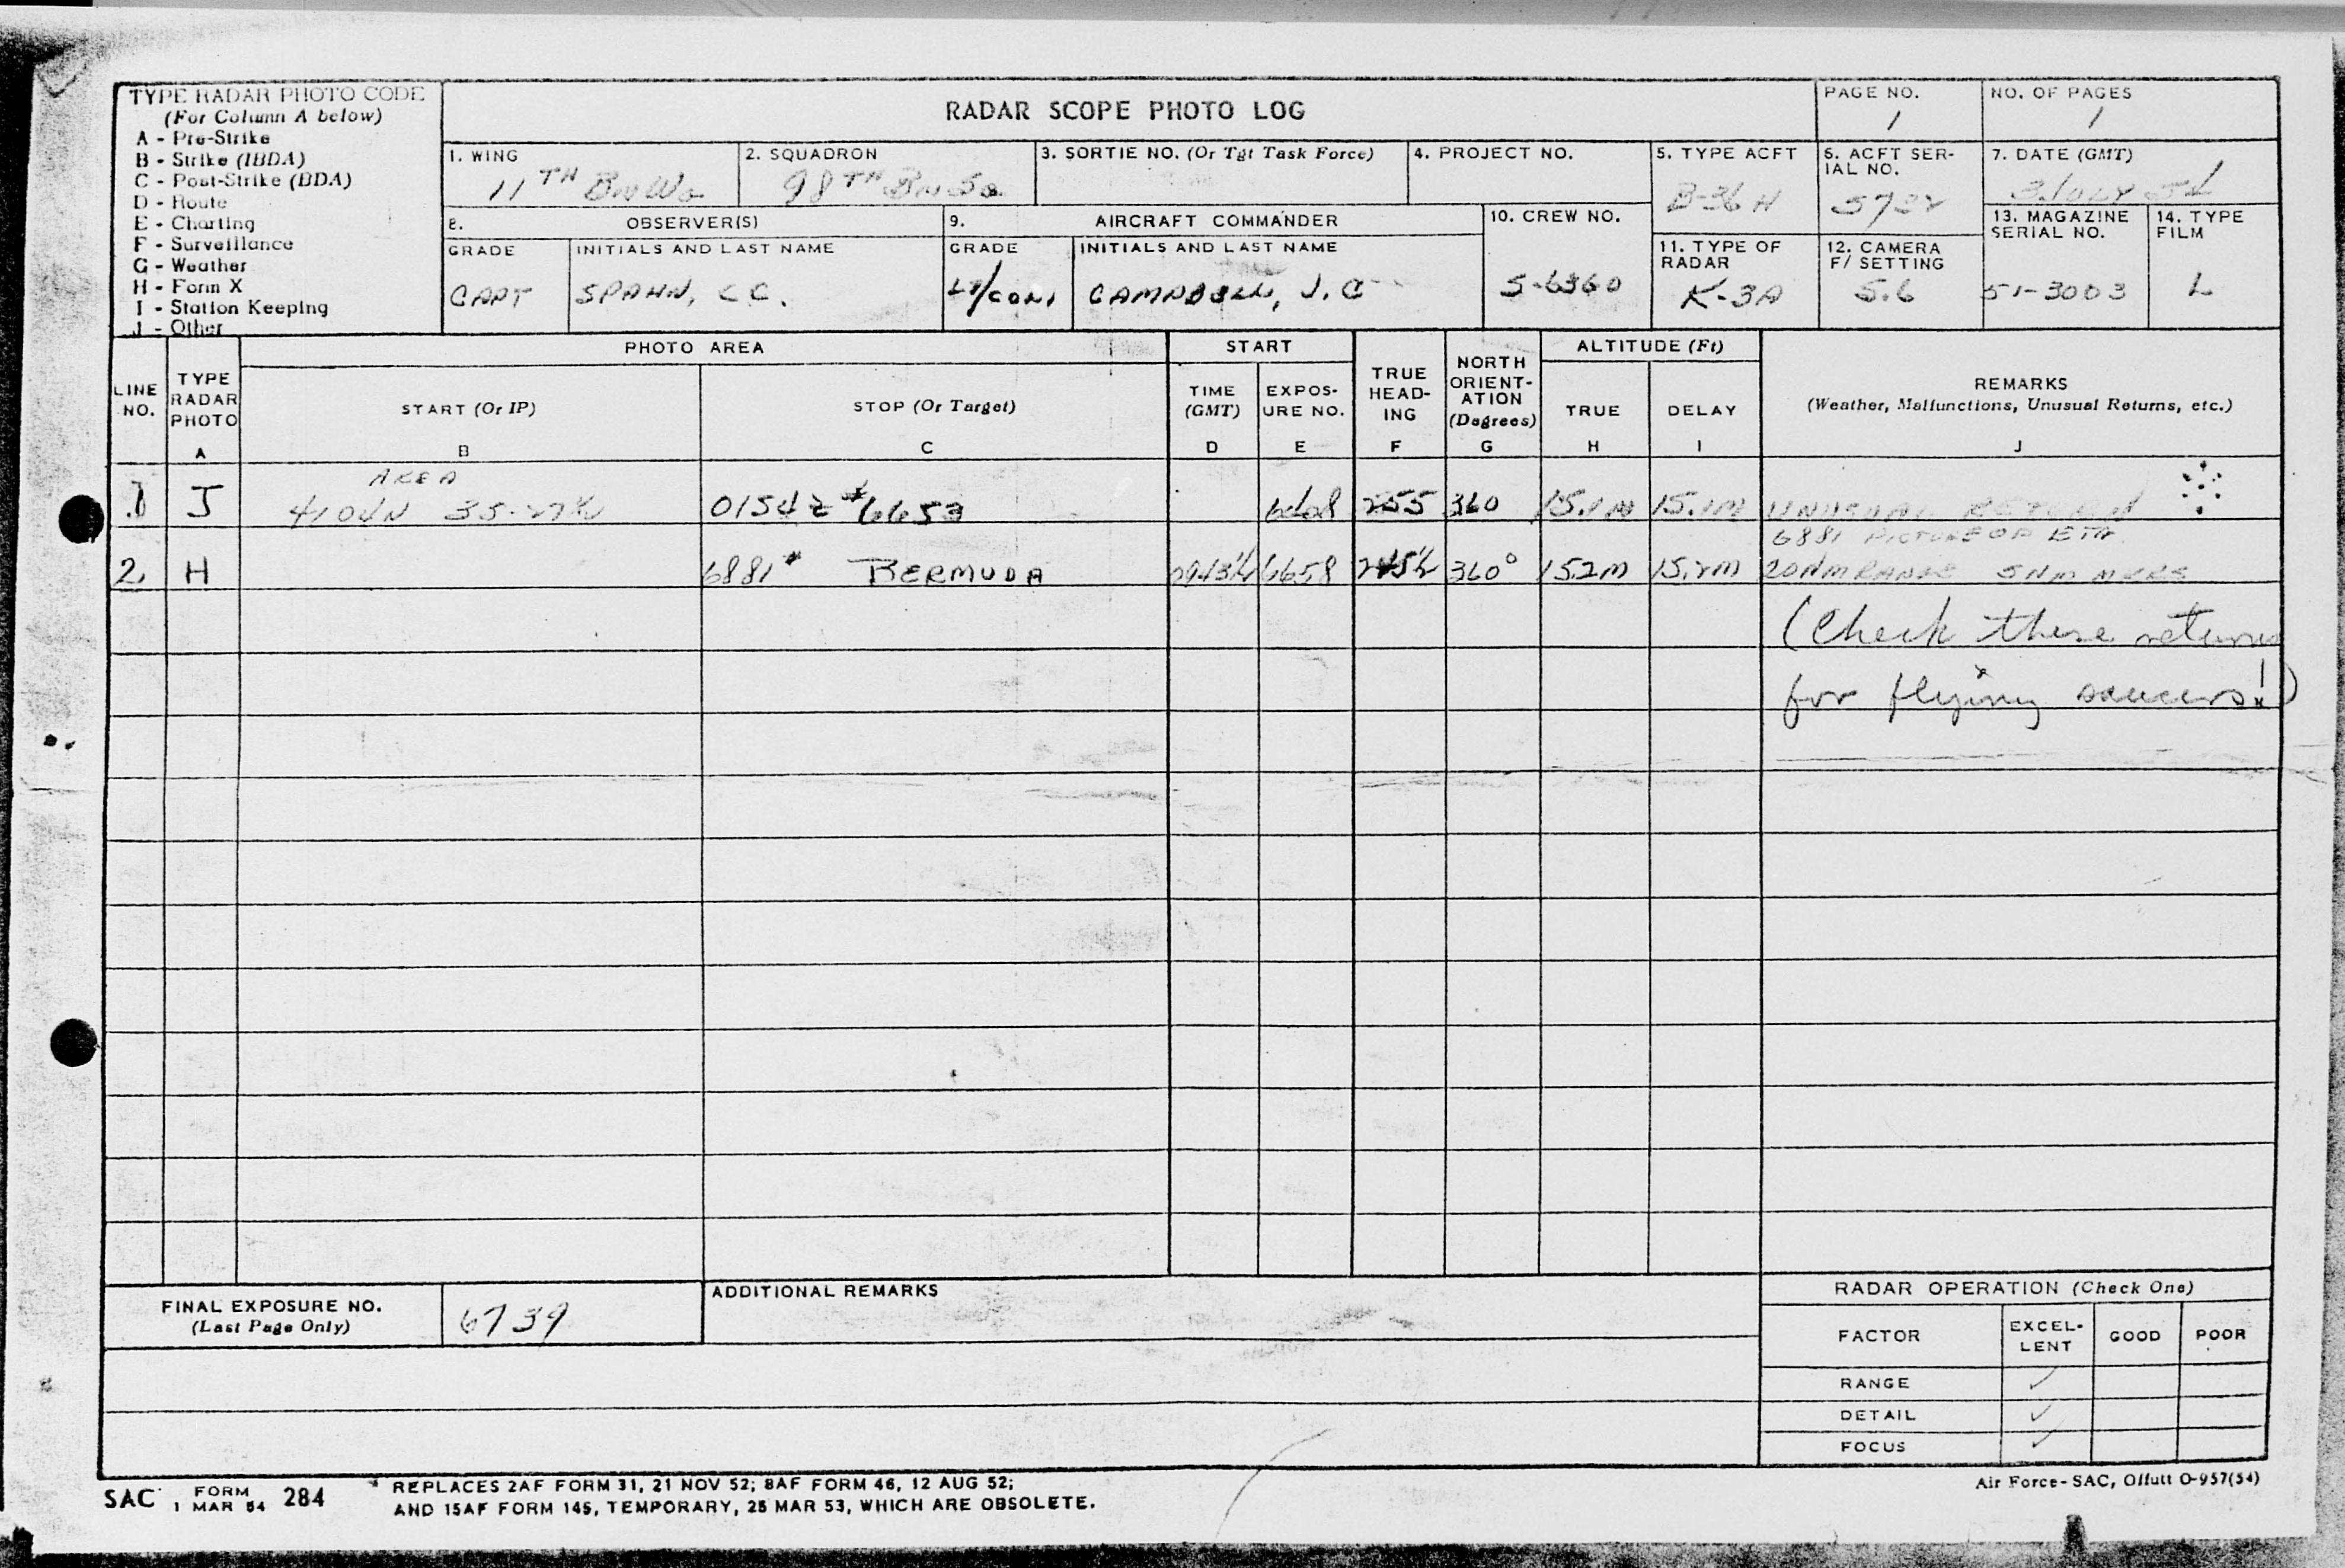 TYPE RADAR PHOTO CODE
(For Column A below)
A - Pre-Strike
B - Strike (IBDA)
C - Post-Strike (BDA)
D - Route
E - Charting
F - Surveillance
G - Weather
H - Form X
I - Station Keeping
J - Other
RADAR SCOPE PHOTO LOG
PAGE NO.
1
NO. OF PAGES
1
1. WING
11TH Bm Wg
2. SQUADRON
98TH Bm Sq
3. SORTIE NO. (Or Tgt Task Force)
4. PROJECT NO.
5. TYPE ACFT
B-36 H
6. ACFT SER-
IAL NO.
7. DATE (GMT)
8.
OBSERVER(S)
GRADE
INITIALS AND LAST NAME
CAPT
SPAHN, C C.
9.
AIRCRAFT COMMANDER
GRADE
INITIALS AND LAST NAME
CAMPBELL, J. C
10. CREW NO.
S-6360
11. TYPE OF
RADAR
K-3A
12. CAMERA
F/ SETTING
5.6
13. MAGAZINE
SERIAL NO.
51-3003
14. TYPE
FILM
L
LINE
NO.
TYPE
RADAR
PHOTO
A
PHOTO AREA
START (Or IP)
B
STOP (Or Target)
C
START
TIME
(GMT)
D
EXPOS-
URE NO.
E
TRUE
HEAD-
ING
F
NORTH
ORIENT-
ATION
(Degrees)
G
ALTITUDE (Ft)
TRUE
H
DELAY
I
REMARKS
(Weather, Malfunctions, Unusual Returns, etc.)
J
AREA
1 J 4104N 0154Z #6653 255 360 15.1M 15.1M UNUSUAL RETURN
6881 PICTURE OF ETA
2 H 6881# BERMUDA 6658 360° 152M 15.2M 20NM RANGE 5NM MKRS
(Check these returns
for flying saucers!)
FINAL EXPOSURE NO.
(Last Page Only)
6739
ADDITIONAL REMARKS
RADAR OPERATION (Check One)
FACTOR
EXCEL-
LENT
GOOD
POOR
RANGE ✓
DETAIL ✓
FOCUS ✓
SAC FORM 1 MAR 54 284
REPLACES 2AF FORM 31, 21 NOV 52; 8AF FORM 46, 12 AUG 52;
AND 15AF FORM 145, TEMPORARY, 25 MAR 53, WHICH ARE OBSOLETE.
Air Force-SAC, Offutt O-957(54)